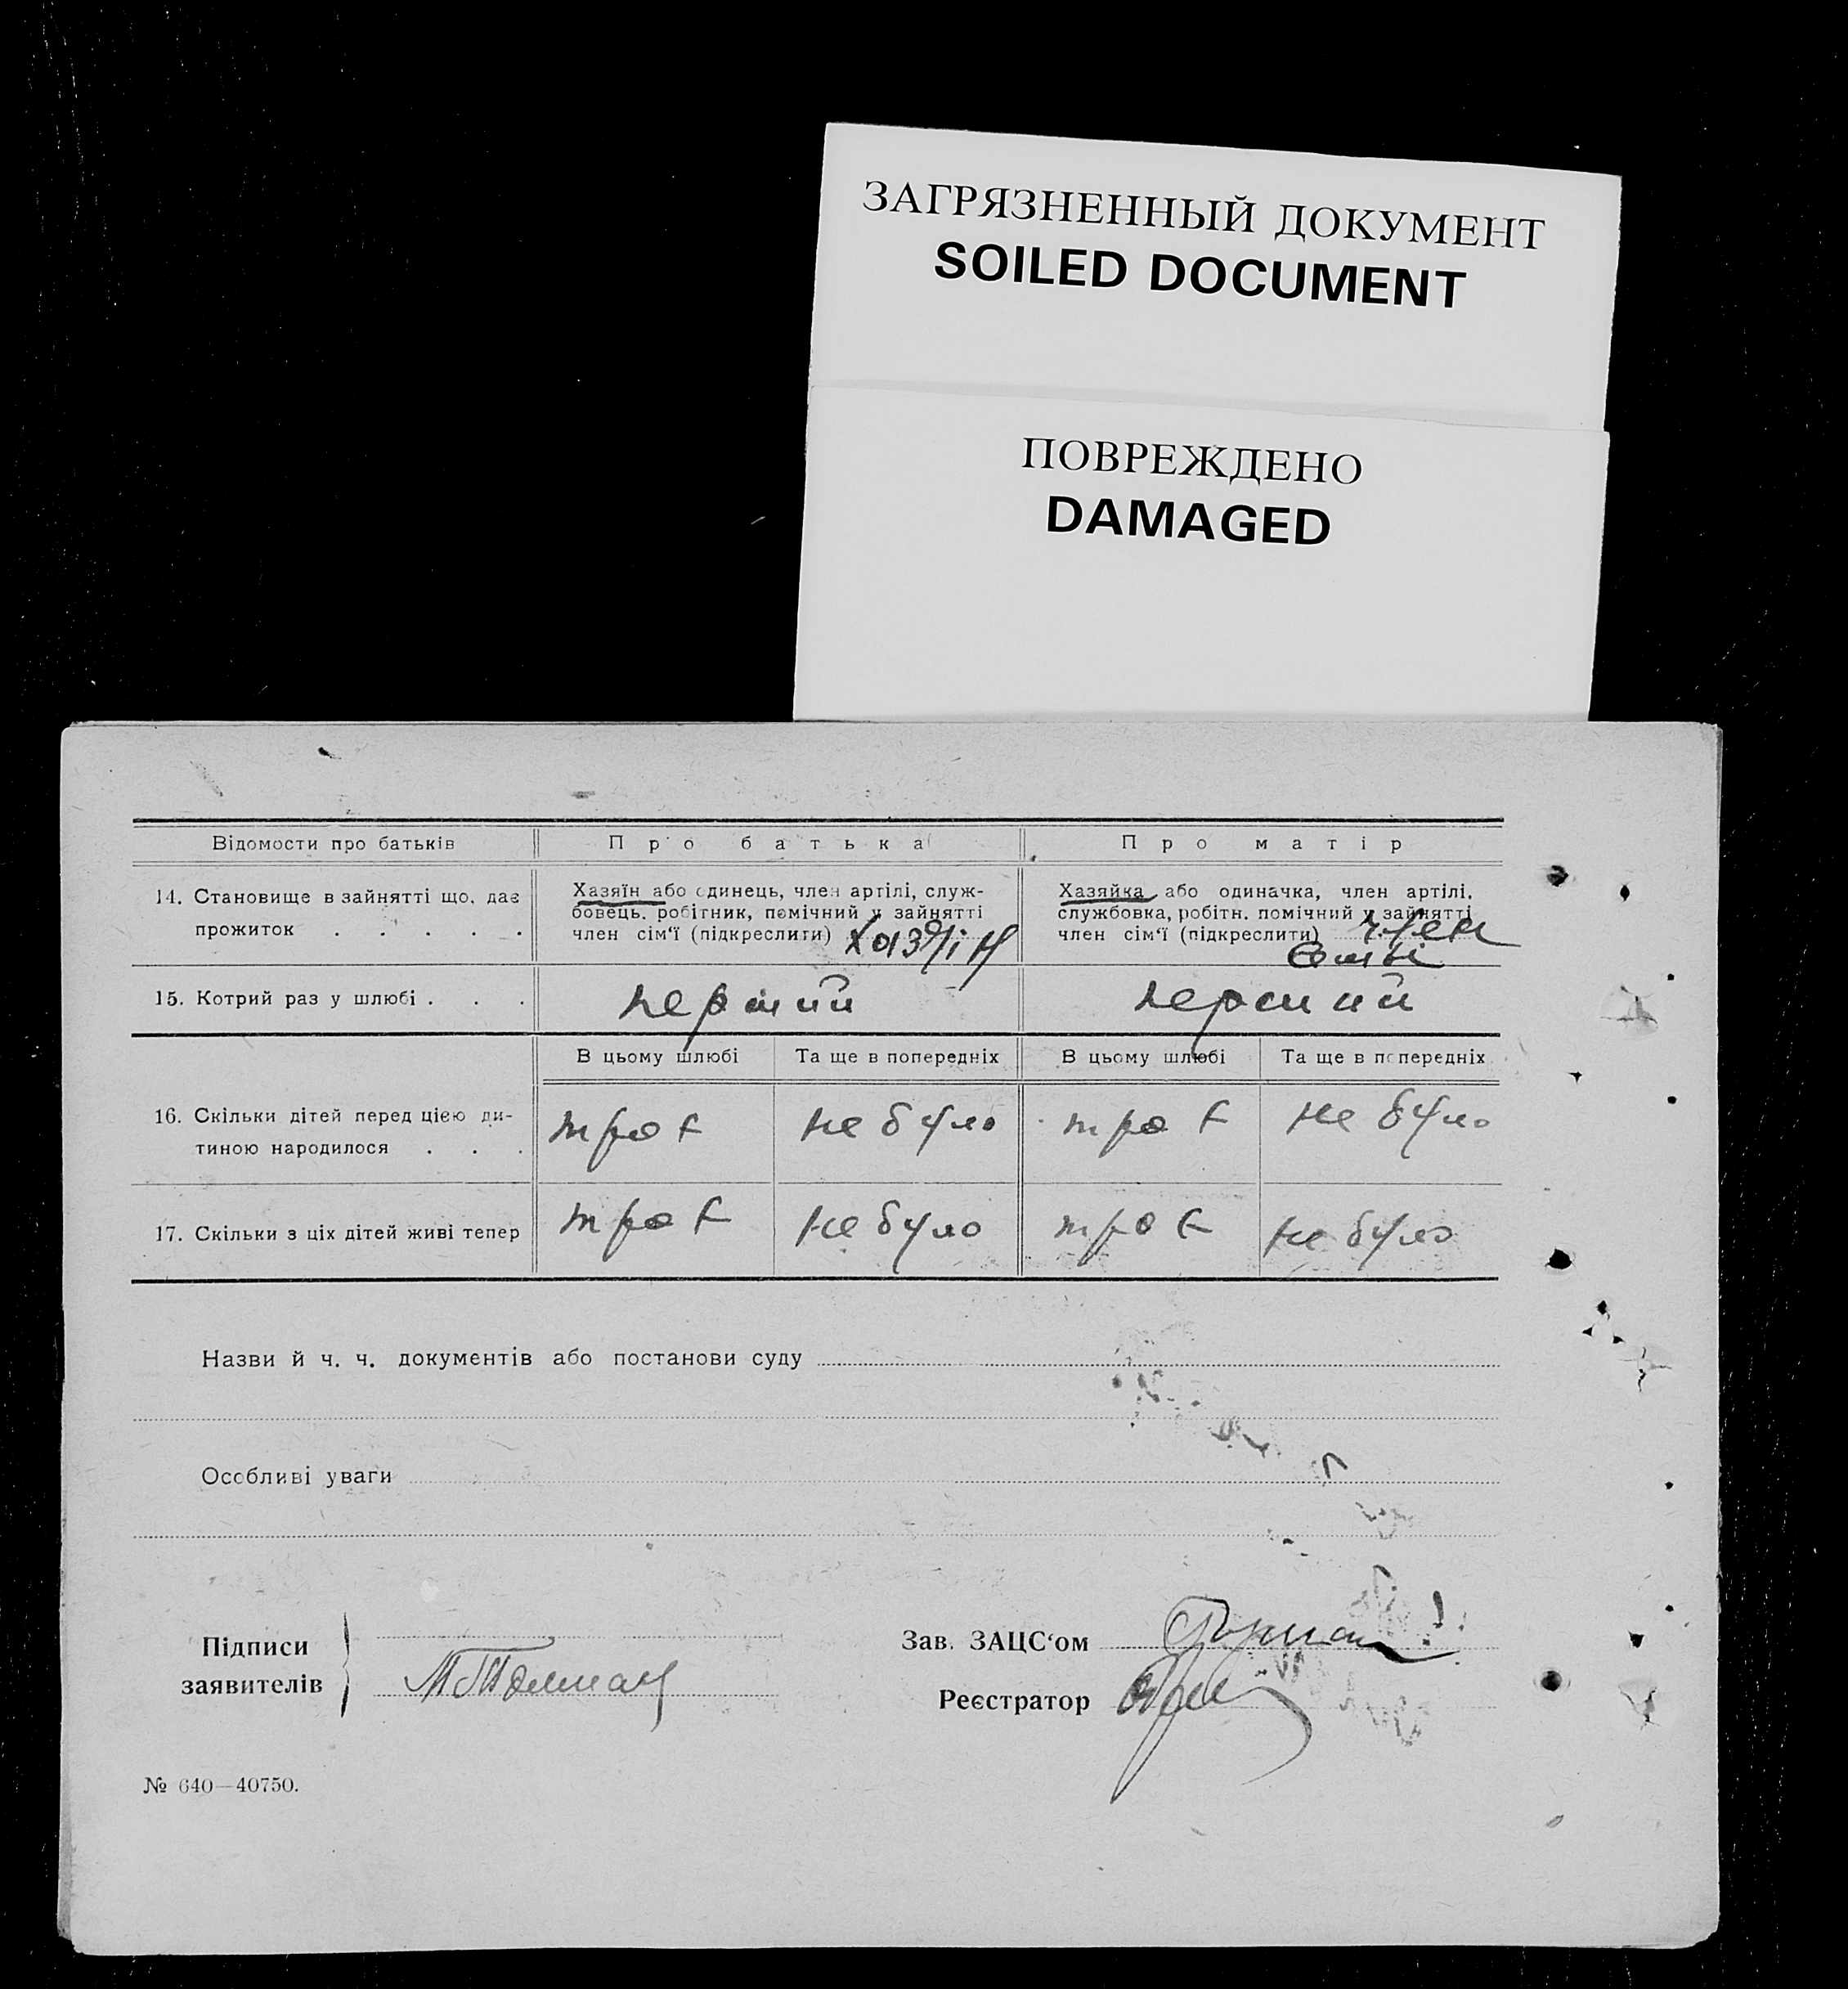 ЗАГРЯЗНЕННЫЙ ДОКУМЕНТ
SOILED DOCUMENT
ПОВРЕЖДЕНО
DAMAGED
Відомости про батьків Про батька Про матір
14. Становище в зайнятті що, дає прожиток . . . . .
Хазяїн або одинець, член артілі, служ-
бовець, робітник, помічний у зайнятті
член сім'ї (підкреслити) Хазяїн
Хазяйка або одиначка, член артілі,
службовка, робітн. помічний у зайнятті
член сім'ї (підкреслити) член
сімї
15. Котрий раз у шлюбі . . . перший перший
В цьому шлюбі Та ще в попередніх В цьому шлюбі Та ще в попередніх
16. Скільки дітей перед цією ди-
тиною народилося . . . троє не було троє не було
17. Скільки з ціх дітей живі тепер троє не було троє не було
Назви й ч. ч. документів або постанови суду
Особливі уваги
Підписи
заявителів
Зав. ЗАЦС'ом
Реєстратор
№ 640—40750.